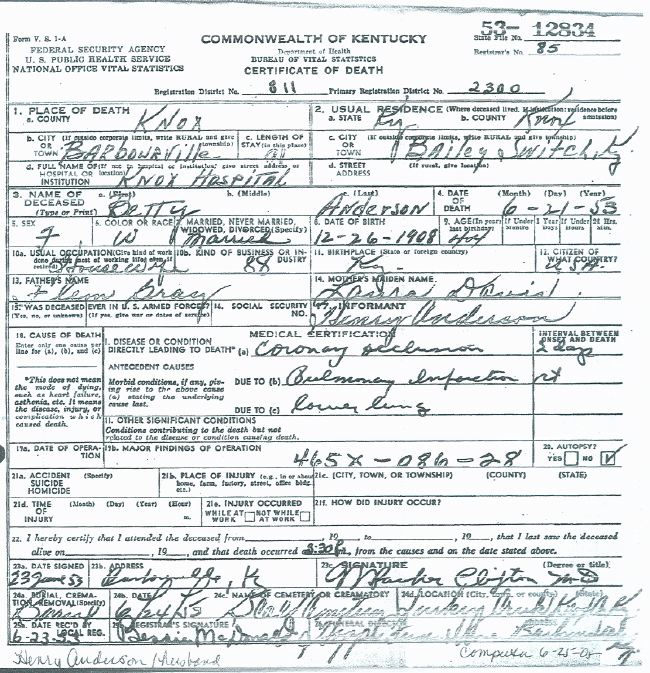 53- 12834
Form V. S. 1-A
COMMONWEALTH OF KENTUCKY
State File No.
FEDERAL SECURITY AGENCY
Department of Health
Registrar's No. 85
U. S. PUBLIC HEALTH SERVICE
BUREAU OF VITAL STATISTICS
NATIONAL OFFICE VITAL STATISTICS
CERTIFICATE OF DEATH
Registration District No. 811 Primary Registration District No. 2300
1. PLACE OF DEATH
a. COUNTY Knox
2. USUAL RESIDENCE (Where deceased lived. If institution: residence before admission)
a. STATE Ky b. COUNTY Knox
b. CITY (If outside corporate limits, write RURAL and give township)
OR TOWN Barbourville
c. LENGTH OF STAY (in this place)
c. CITY (If outside corporate limits, write RURAL and give township)
OR TOWN Bailey Switch, Ky
d. FULL NAME OF (If not in hospital or institution, give street address or location)
HOSPITAL OR INSTITUTION Knox Hospital
d. STREET ADDRESS (If rural, give location)
3. NAME OF DECEASED (Type or Print)
a. (First) Betty
b. (Middle)
c. (Last) Anderson
4. DATE OF DEATH (Month) (Day) (Year) 6-21-53
5. SEX F
6. COLOR OR RACE W
7. MARRIED, NEVER MARRIED, WIDOWED, DIVORCED (Specify) Married
8. DATE OF BIRTH 12-26-1908
9. AGE (In years last birthday) 44
If Under 1 Year If Under 24 Hrs.
10a. USUAL OCCUPATION (Give kind of work done during most of working life, even if retired) Housewife
10b. KIND OF BUSINESS OR INDUSTRY 88
11. BIRTHPLACE (State or foreign country) Ky.
12. CITIZEN OF WHAT COUNTRY? USA.
13. FATHER'S NAME
14. MOTHER'S MAIDEN NAME
15. WAS DECEASED EVER IN U. S. ARMED FORCES?
(Yes, no, or unknown) (If yes, give war or dates of service)
16. SOCIAL SECURITY NO.
17. INFORMANT
Henry Anderson
18. CAUSE OF DEATH
Enter only one cause per line for (a), (b), and (c)
MEDICAL CERTIFICATION
INTERVAL BETWEEN ONSET AND DEATH
I. DISEASE OR CONDITION
DIRECTLY LEADING TO DEATH* (a) Coronary occlusion 2 days
*This does not mean the mode of dying, such as heart failure, asthenia, etc. It means the disease, injury, or complication which caused death.
ANTECEDENT CAUSES
Morbid conditions, if any, giving rise to the above cause (a) stating the underlying cause last.
DUE TO (b) Pulmonary Infarction rt
DUE TO (c) lower lung
II. OTHER SIGNIFICANT CONDITIONS
Conditions contributing to the death but not related to the disease or condition causing death.
19a. DATE OF OPERATION
19b. MAJOR FINDINGS OF OPERATION
465X-086-28
20. AUTOPSY?
YES NO
21a. ACCIDENT SUICIDE HOMICIDE (Specify)
21b. PLACE OF INJURY (e.g., in or about home, farm, factory, street, office bldg. etc.)
21c. (CITY, TOWN, OR TOWNSHIP) (COUNTY) (STATE)
21d. TIME OF INJURY (Month) (Day) (Year) (Hour) m.
21e. INJURY OCCURRED
WHILE AT WORK NOT WHILE AT WORK
21f. HOW DID INJURY OCCUR?
22. I hereby certify that I attended the deceased from , 19 to , 19 , that I last saw the deceased
alive on , 19 , and that death occurred 3:30 P , from the causes and on the date stated above.
23a. DATE SIGNED 23 June 53
23b. ADDRESS Barbourville, K
23c. SIGNATURE (Degree or title)
M.D
24a. BURIAL, CREMATION, REMOVAL (Specify)
24b. DATE
24c. NAME OF CEMETERY OR CREMATORY
24d. LOCATION (City, town, or county) (State)
25a. DATE REC'D BY LOCAL REG. 6-23-53
25b. REGISTRAR'S SIGNATURE Bessie McDonald
26. FUNERAL DIRECTOR ADDRESS
Henry Anderson / Husband
Computer 6-25-08